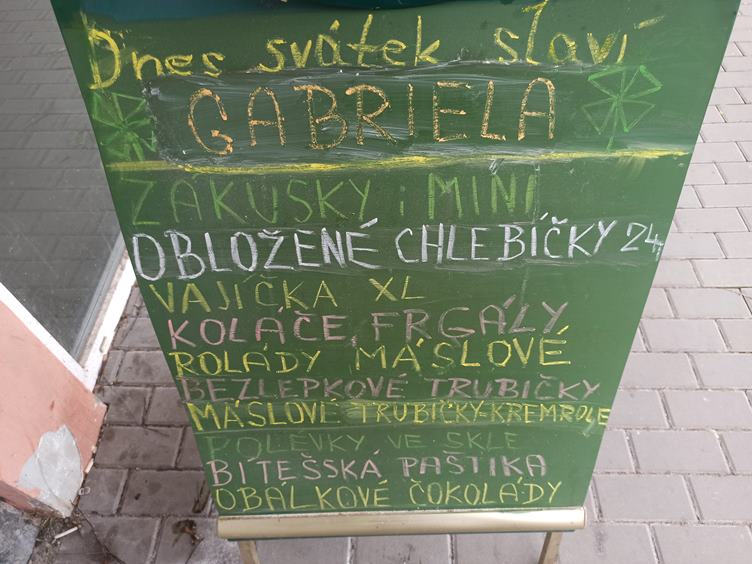 Dnes svátek slaví
GABRIELA
ZÁKUSKY i MINI
OBLOŽENÉ CHLEBÍČKY 24,
VAJÍČKA XL
KOLÁČE, FRGÁLY
ROLÁDY MÁSLOVÉ
BEZLEPKOVÉ TRUBIČKY
MÁSLOVÉ TRUBIČKY-KREMROLE
POLÉVKY VE SKLE
BÍTEŠSKÁ PAŠTIKA
OBALKOVÉ ČOKOLÁDY